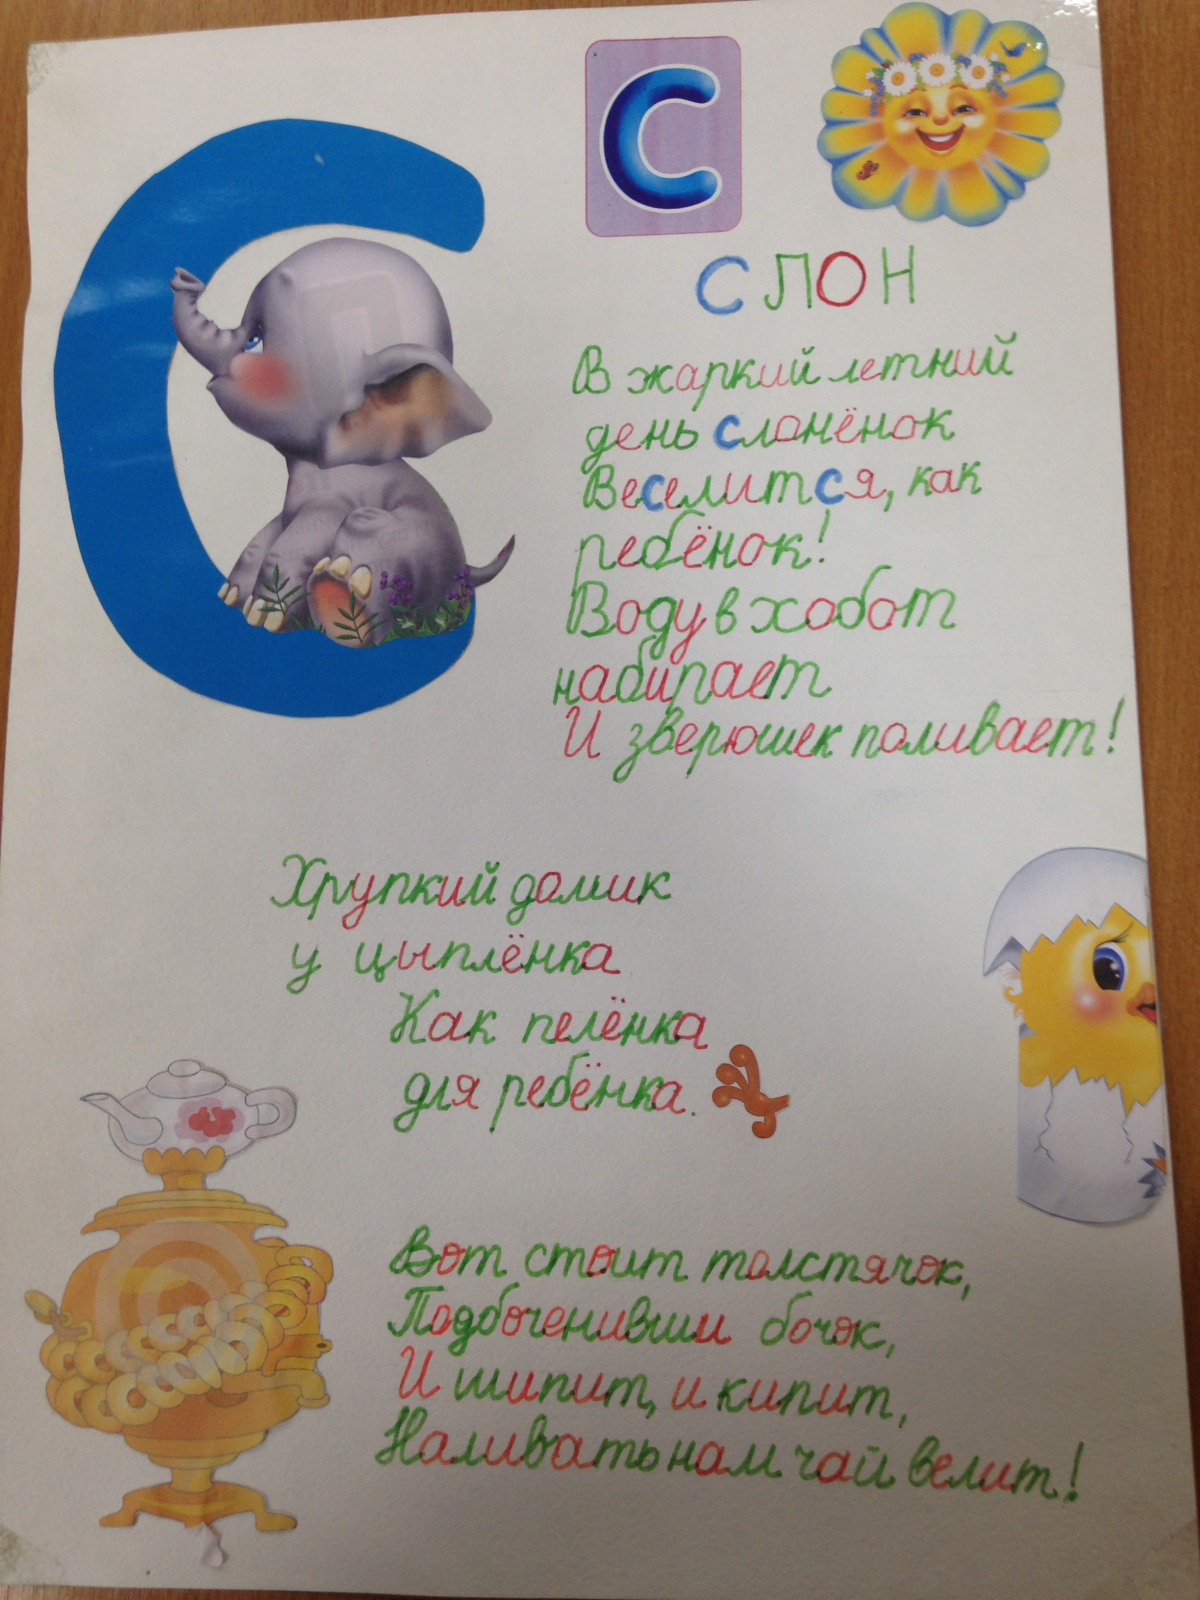 С
С
СЛОН
В жаркий летний
день слонёнок
Веселится, как
ребёнок!
Воду в хобот
набирает
И зверюшек поливает!
Хрупкий домик
у цыплёнка
Как пелёнка
для ребёнка.
Вот стоит толстячок,
Подбоченивши бочок,
И шипит, и кипит,
Наливать нам чай велит!